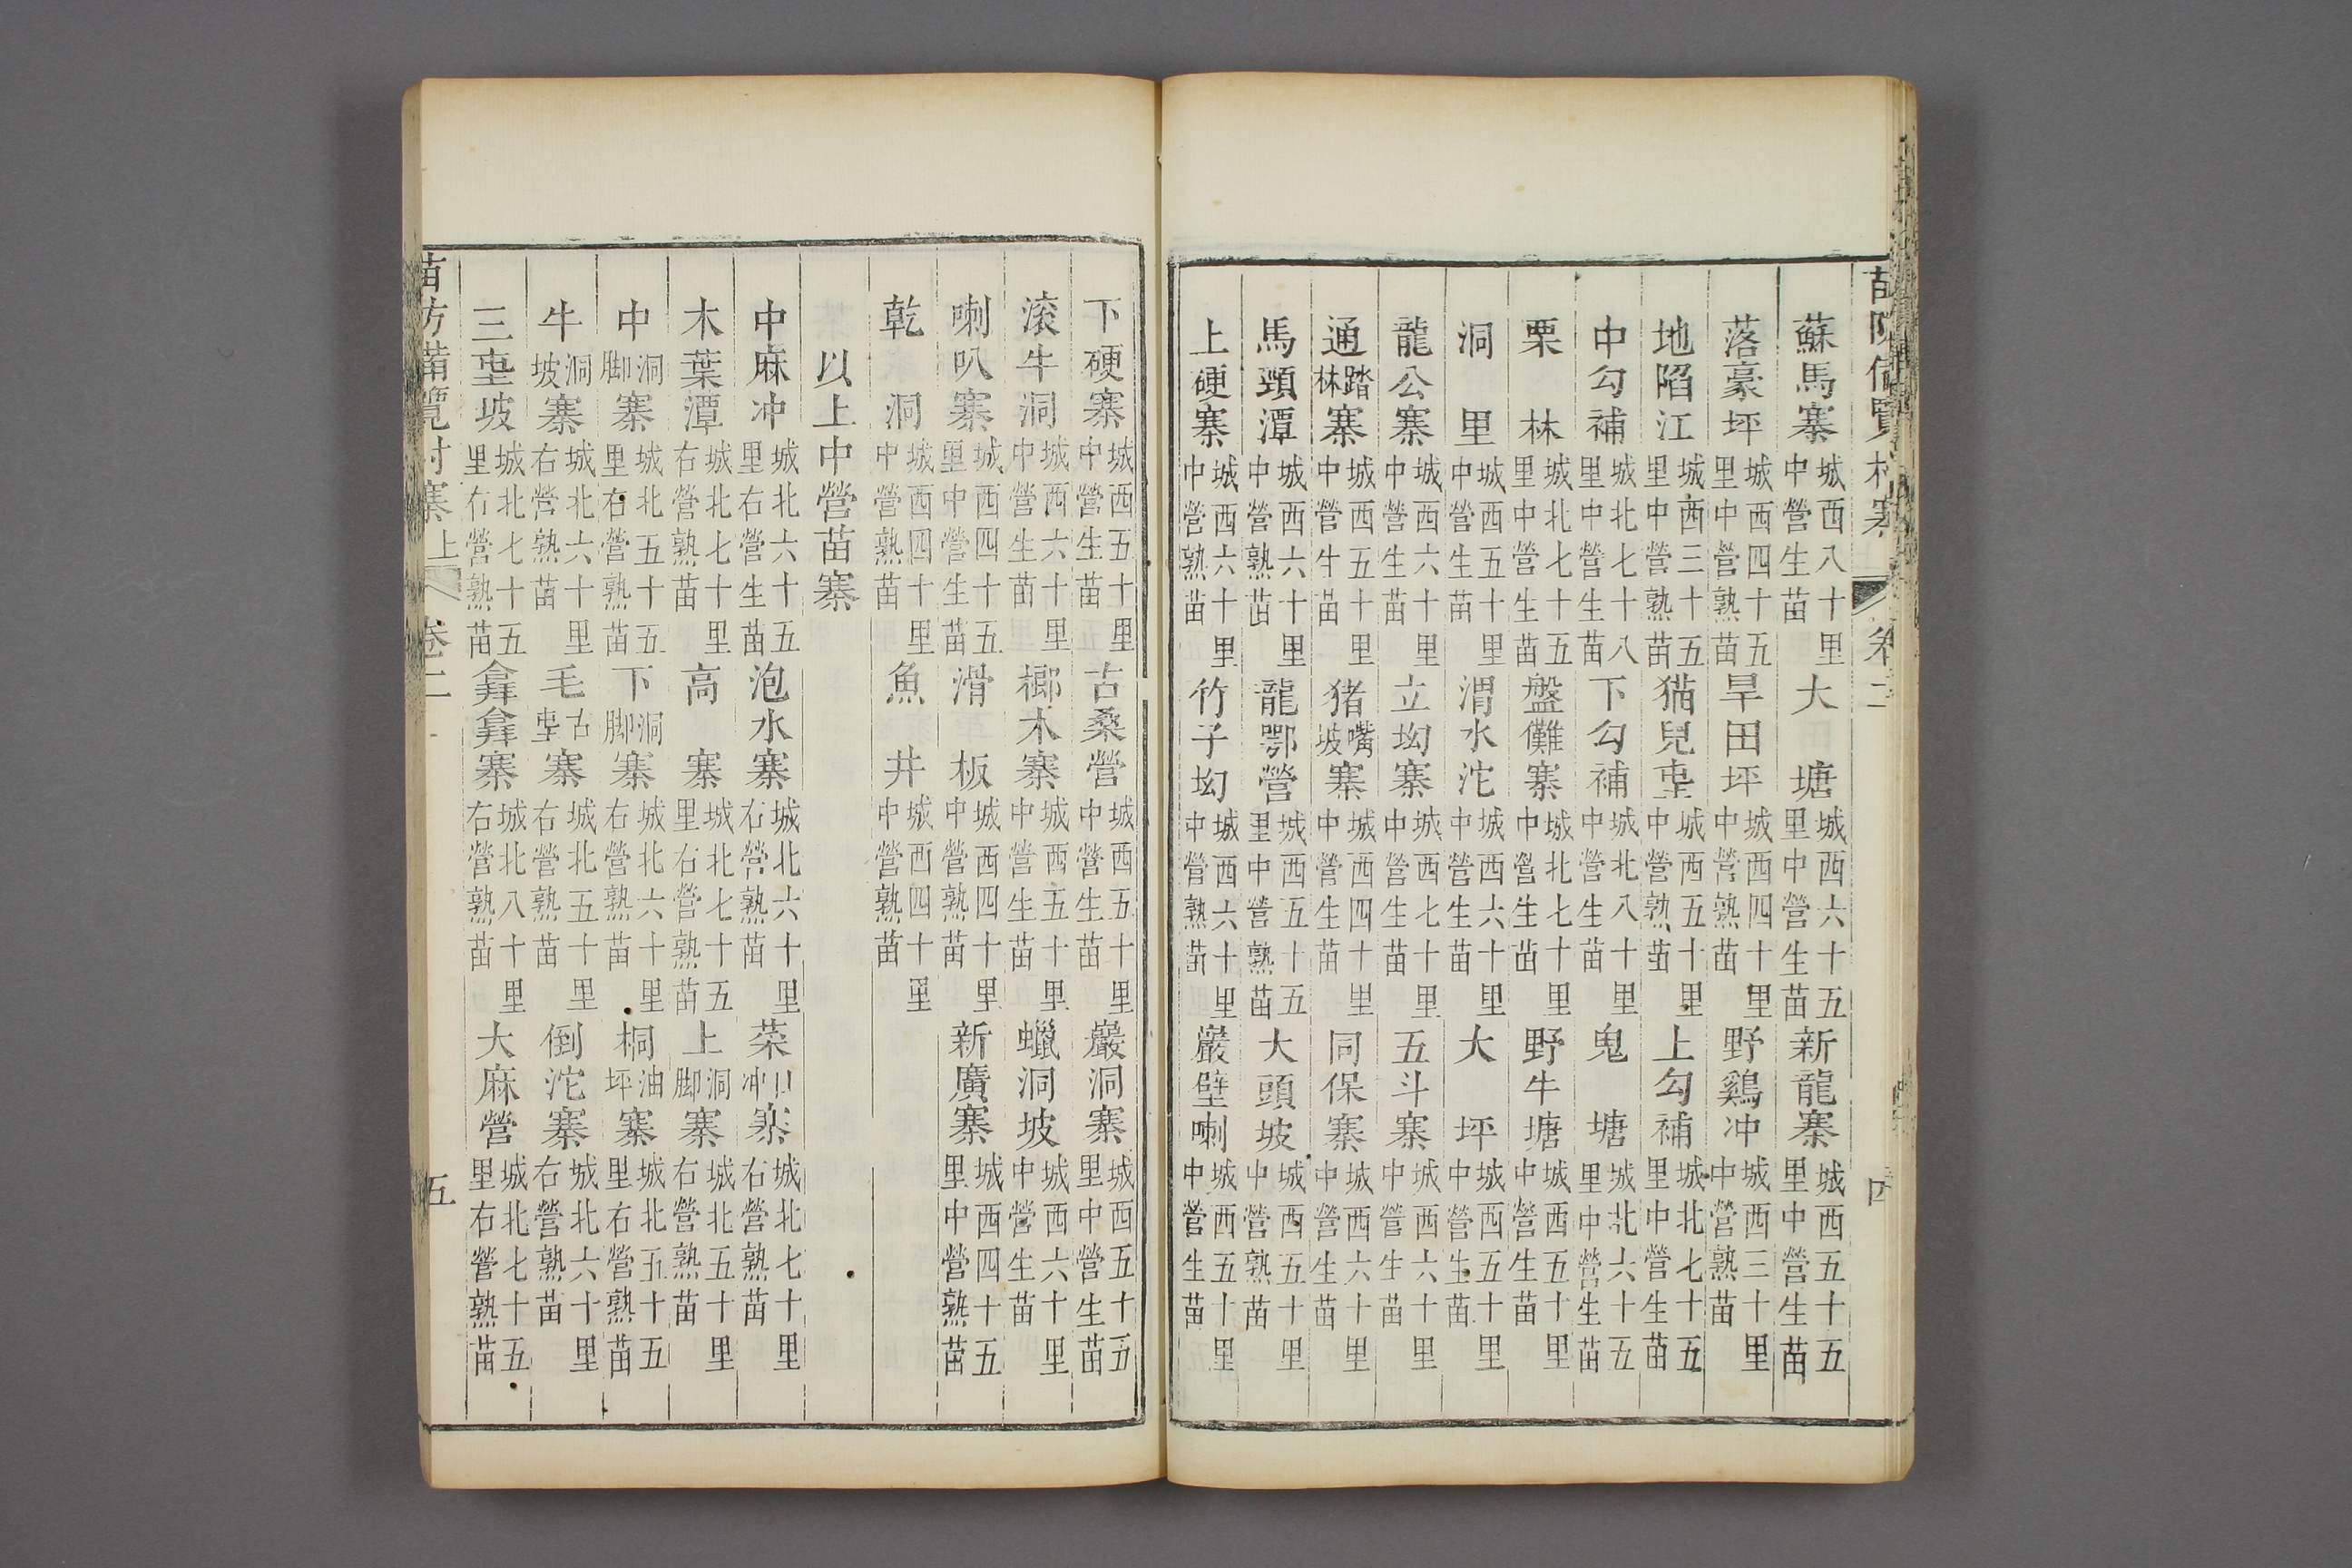 苗防備覽村寨上 卷二 四
蘇馬寨城西八十里中營生苗 大塘城西六十五里中營生苗 新龍寨城西五十五里中營生苗
落豪坪城西四十五里中營熟苗 旱田坪城西四十里中營熟苗 野鷄冲城西三十里中營熟苗
地陷江城西三十五里中營熟苗 猫兒𡋾城西五十里中營熟苗 上勾補城北七十五里中營生苗
中勾補城北七十八里中營生苗 下勾補城北八十里中營生苗 鬼塘城北六十五里中營生苗
栗林城北七十五里中營生苗 盤儺寨城北七十里中營生苗 野牛塘城西五十里中營生苗
洞里城西五十里中營生苗 渭水沱城西六十里中營生苗 大坪城西五十里中營生苗
龍公寨城西六十里中營生苗 立坳寨城西七十里中營生苗 五斗寨城西六十里中營生苗
通踏林寨城西五十里中營生苗 猪嘴坡寨城西四十里中營生苗 同保寨城西六十里中營生苗
馬頸潭城西六十里中營熟苗 龍鄂營城西五十五里中營熟苗 大頭坡城西五十里中營熟苗
上硬寨城西六十里中營熟苗 竹子坳城西六十里中營熟苗 巖壁喇城西五十里中營生苗
下硬寨城西五十里中營生苗 古桑營城西五十里中營生苗 巖洞寨城西五十五里中營生苗
滚牛洞城西六十里中營生苗 榔木寨城西五十里中營生苗 蠟洞坡城西六十里中營生苗
喇叭寨城西四十五里中營生苗 滑板城西四十里中營熟苗 新廣寨城西四十五里中營熟苗
乾洞城西四十里中營熟苗 魚井城西四十里中營熟苗
以上中營苗寨
中麻冲城北六十五里右營生苗 泡水寨城北六十里右營熟苗 菜冲寨城北七十里右營熟苗
木葉潭城北七十里右營熟苗 高寨城北七十五里右營熟苗 上洞脚寨城北五十里右營熟苗
中洞脚寨城北五十五里右營熟苗 下洞脚寨城北六十里右營熟苗 桐油坪寨城北五十五里右營熟苗
牛洞坡寨城北六十里右營熟苗 毛古𡋾寨城北五十里右營熟苗 倒沱寨城北六十里右營熟苗
三𡋾坡城北七十五里右營熟苗 寨城北八十里右營熟苗 大麻營城北七十五里右營熟苗
苗防備覽村寨上 卷二 五